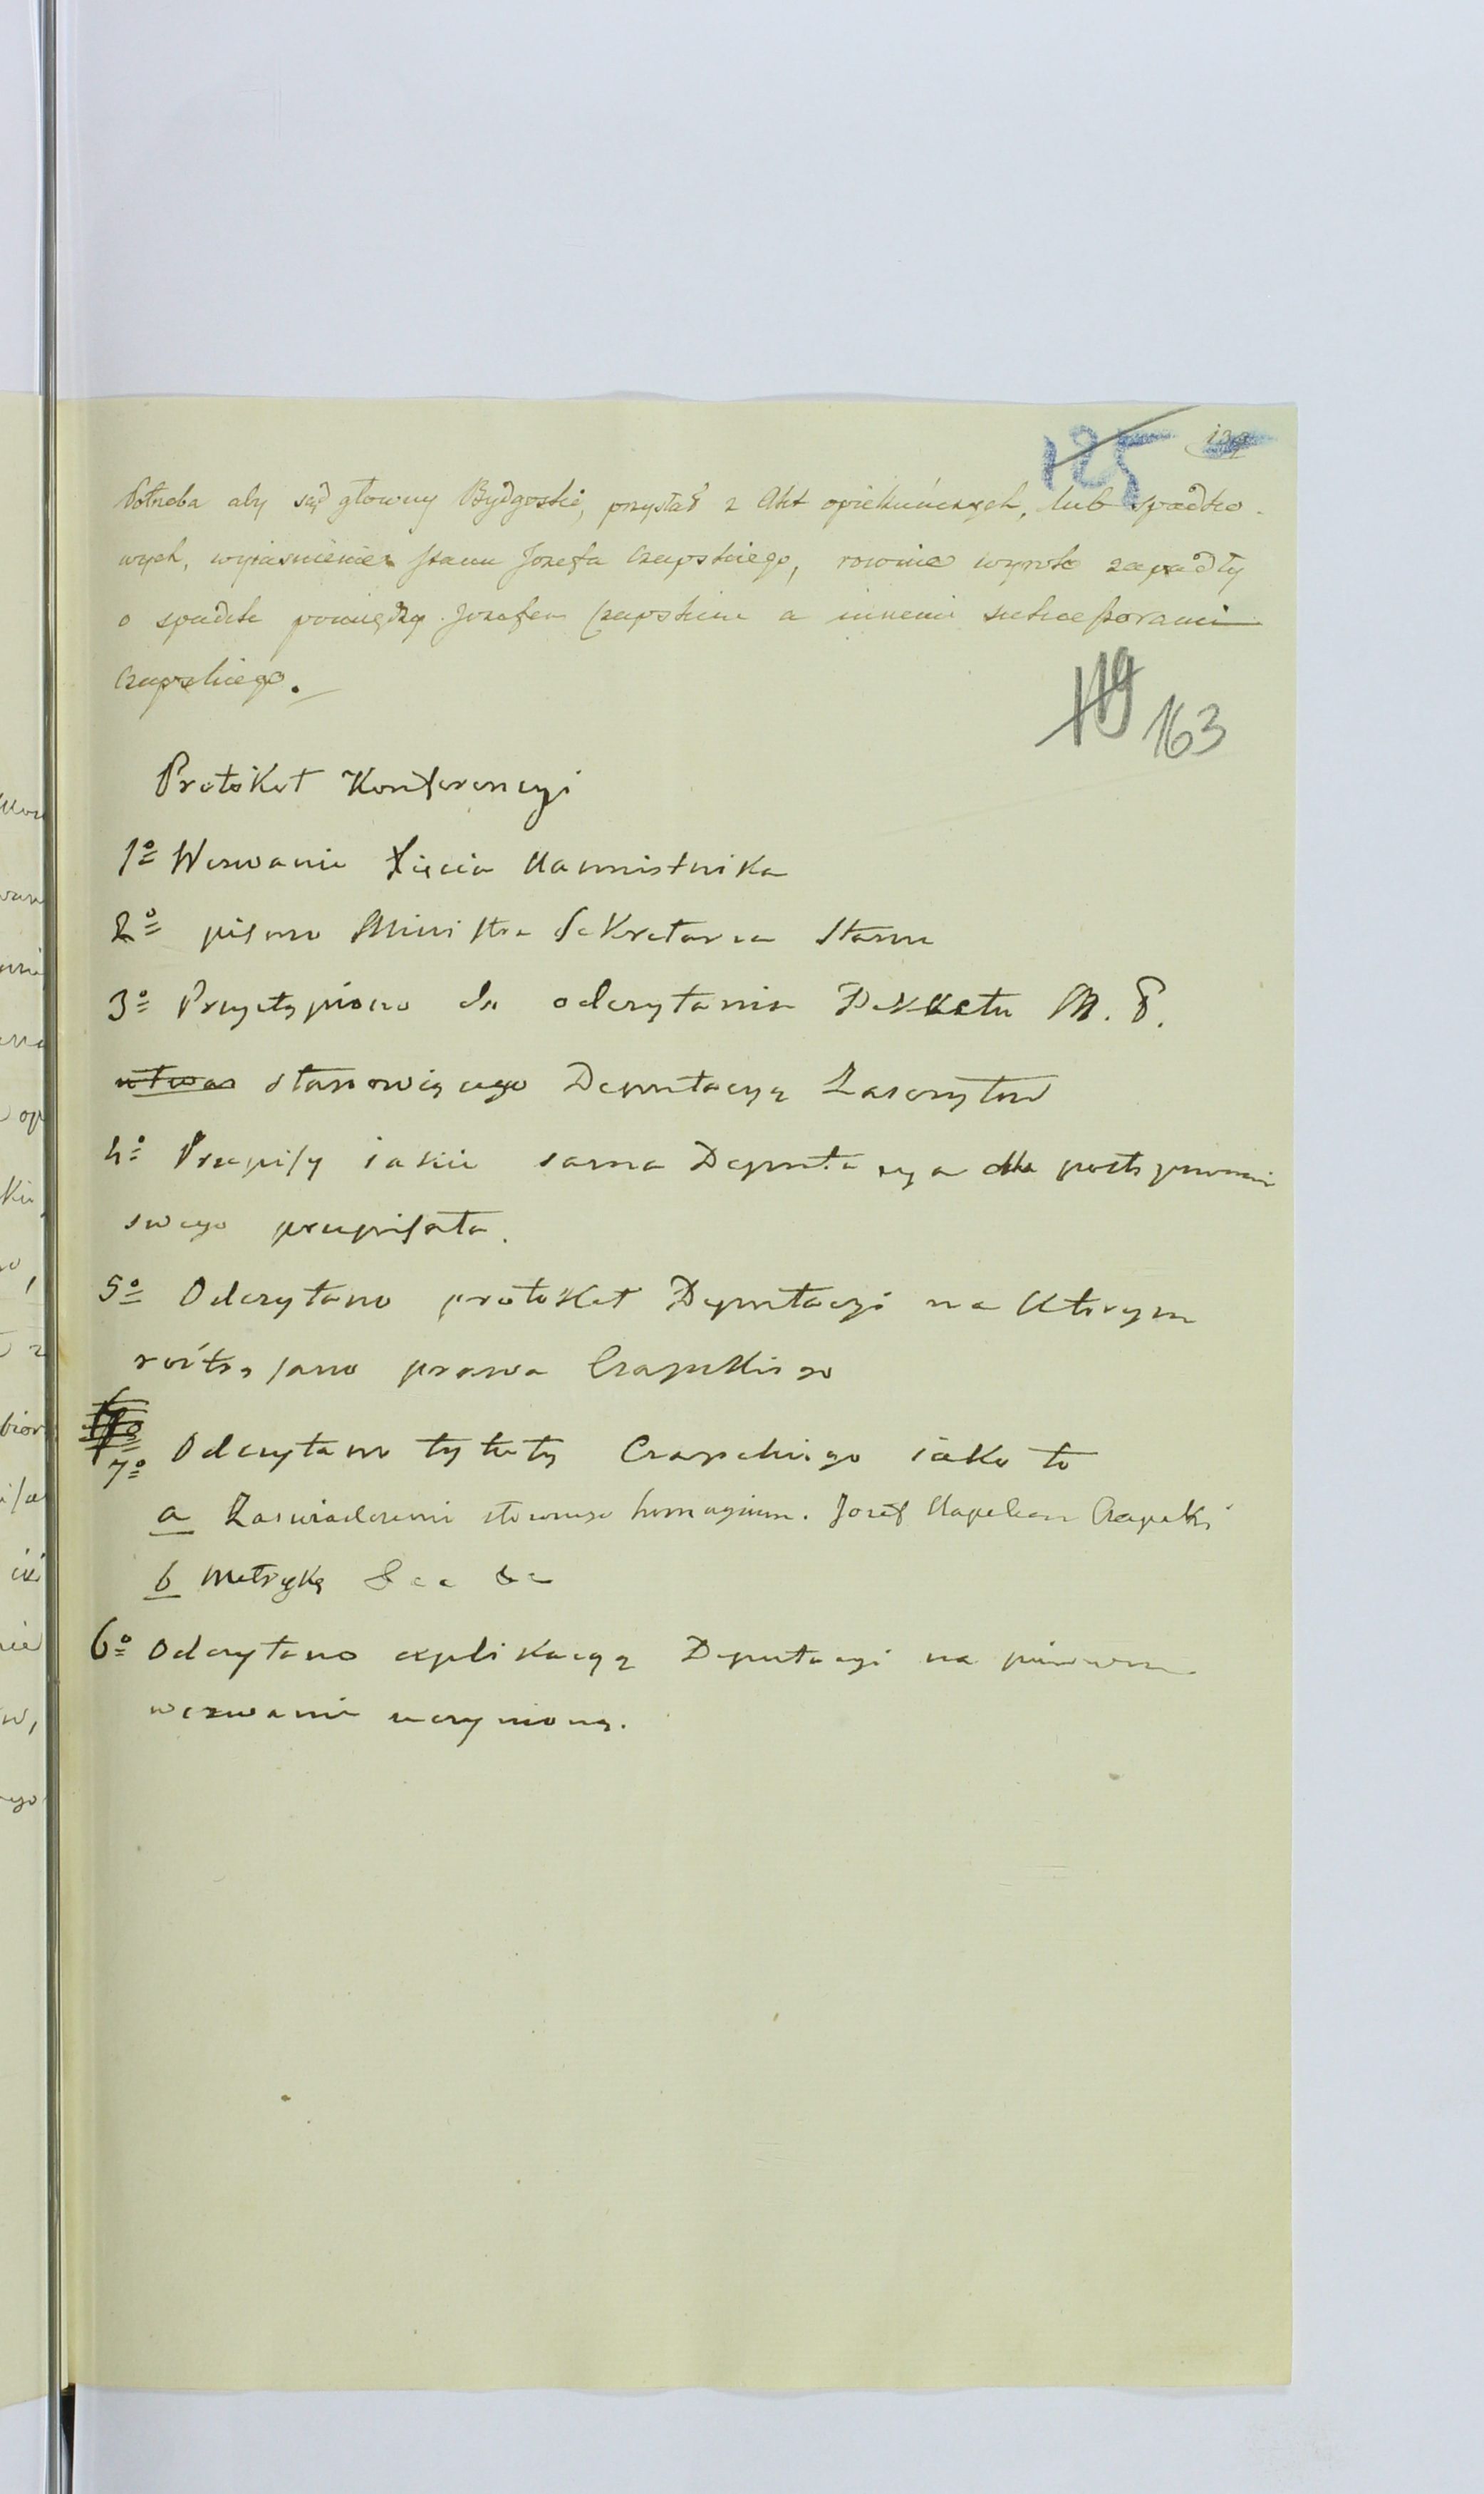 125
Potrzeba aby sąd głowny Bydgoski, przysłał z Akt opiekuńczych, lub spadko-
wych, wyiasnienie stanu Jozefa Czapskiego, rownie wyrok zapadły
o spadek pomiędzy Jozefem Czapskim a innemi sukcessorami
Czapskiego.
119 163
Protokół Konferencyi
1º Wezwanie Xięcia Namiestnika
2º pismo Ministra Sekretarza Stanu
3º Przystąpiono do odczytania Dekretu M. P.
utwor stanowiącego Deputacyą Zaszczytów
4º Przepisy iakie sama Deputacya dla postępowania
swego przepisała.
5º Odczytano protokół Deputacyi na którym
roztrząsano prawa Czapskiego
7º Odczytano tytuły Czapskiego iako to
a Zaswiadczenie homagium. Jozef Czapski
b Metrykę &c &c
6º Odczytano explikacyą Deputacyi na pierwsze
wezwanie uczynioną.